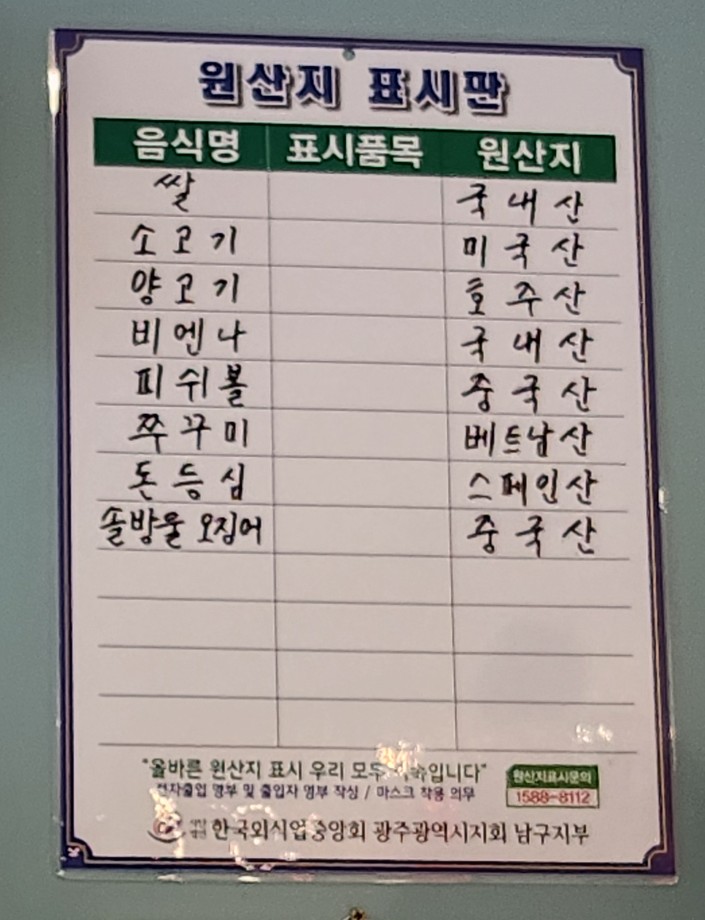 원산지 표시판
음식명 표시품목 원산지
쌀 국내산
소고기 미국산
양고기 호주산
비엔나 국내산
피쉬볼 중국산
쭈꾸미 베트남산
돈등심 스페인산
솔방울 오징어 중국산
"올바른 원산지 표시 우리 모두 입니다"
전자출입 명부 및 출입자 명부 작성 / 마스크 착용 의무
원산지표시문의
1588-8112
한국외식업중앙회 광주광역시지회 남구지부